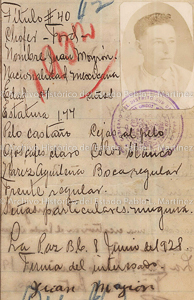 Título #40
62
Chofer - Ford -
1932
Nombre Juan Mayión.
Nacionalidad mexicana
Edad años
Estatura 1.77
Pelo castaño Cejas al pelo
Ojos cafés claro Color blanco
Nariz Aguileña Boca regular
Frente regular.
Señas particulares ninguna
La Paz B.C. 8 Junio de 1928.
Firma del interesado
Juan Mayión